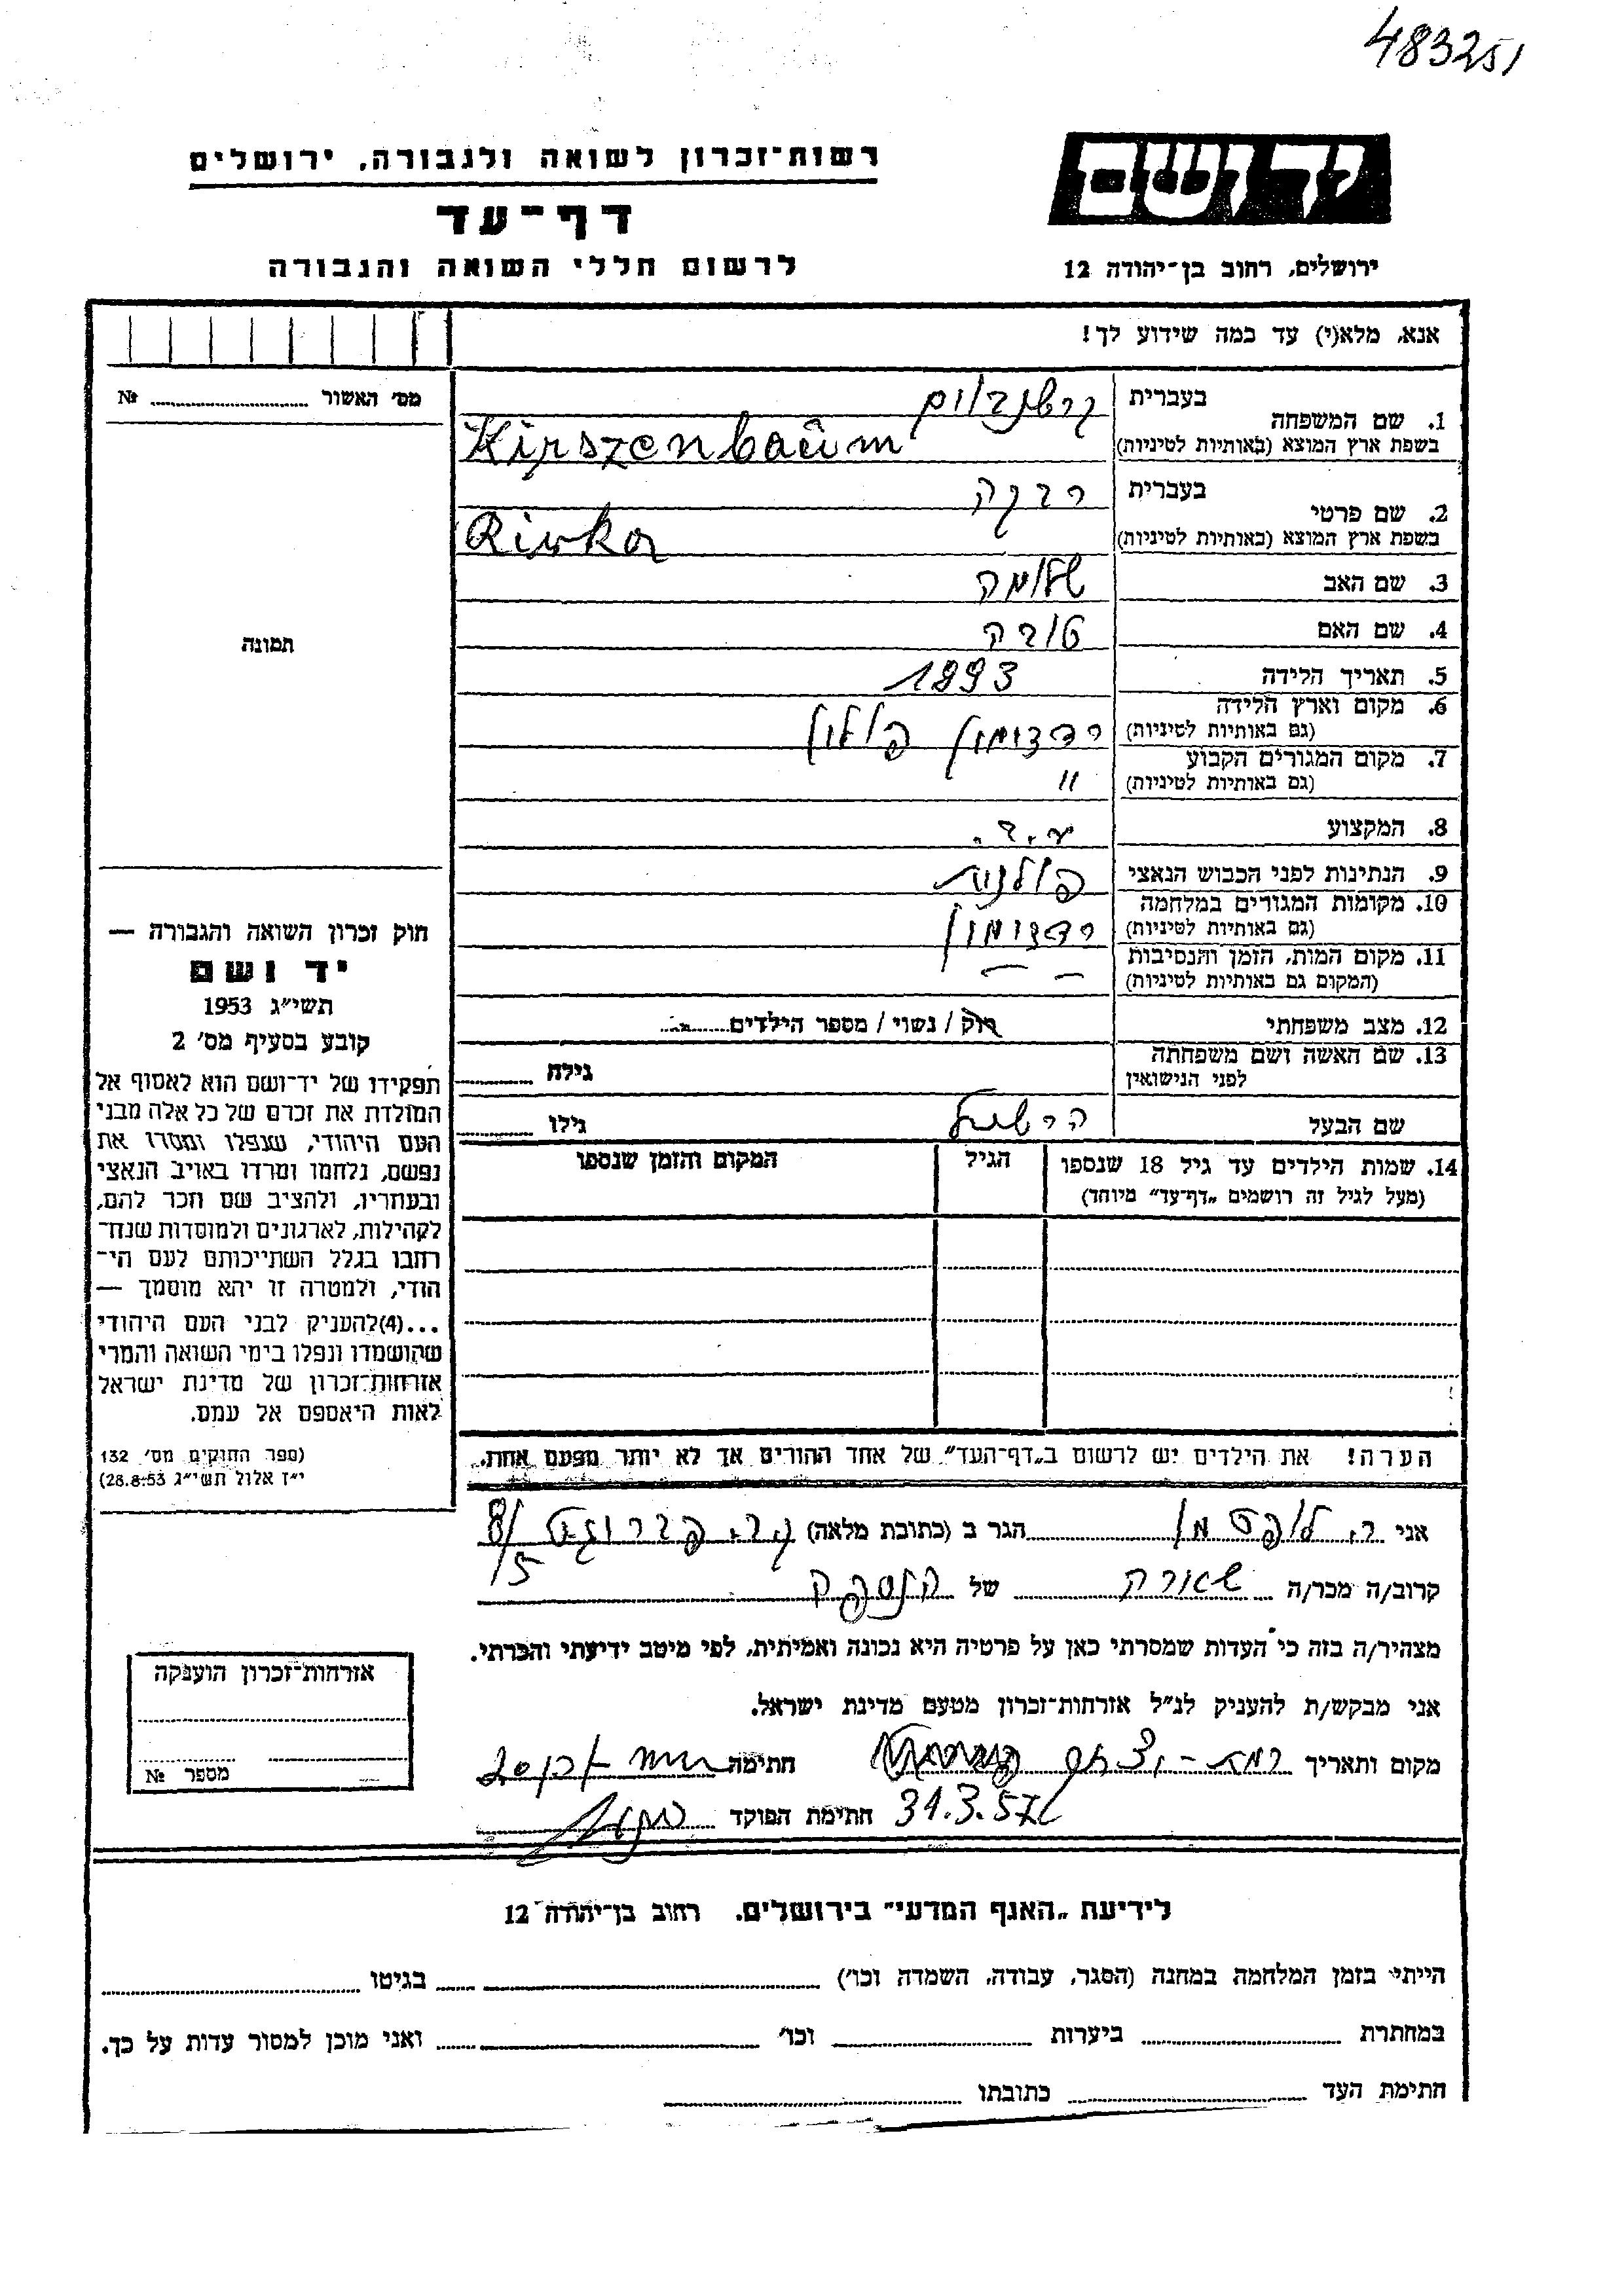 483251
רשות־זכרון לשואה ולגבורה, ירושלים
דף־עד
לרשום חללי השואה והגבורה
יד ושם
ירושלים, רחוב בן־יהודה 12
אנא, מלא(י) עד כמה שידוע לך!
מס׳ האשור № 
1. שם המשפחה בעברית קרשנבאום
בשפת ארץ המוצא (באותיות לטיניות) Kirszenbaum
2. שם פרטי בעברית רבקה
בשפת ארץ המוצא (באותיות לטיניות) Rivka
3. שם האב שלומה
4. שם האם טובה
תמונה
5. תאריך הלידה 1893
6. מקום וארץ הלידה (גם באותיות לטיניות) רדזימין פולין
7. מקום המגורים הקבוע (גם באותיות לטיניות) "
8. המקצוע
9. הנתינות לפני הכבוש הנאצי פולנית
10. מקומות המגורים במלחמה (גם באותיות לטיניות) רדזימין
11. מקום המות, הזמן והנסיבות (המקום גם באותיות לטיניות) — —
12. מצב משפחתי רוק / נשוי / מספר הילדים
13. שם האשה ושם משפחתה לפני הנישואין גילה
שם הבעל הרשל גילו
14. שמות הילדים עד גיל 18 שנספו
(מעל לגיל זה רושמים „דף־עד" מיוחד)
הגיל
המקום והזמן שנספו
הערה! את הילדים יש לרשום ב„דף־העד" של אחד ההורים אך לא יותר מפעם אחת.
חוק זכרון השואה והגבורה —
יד ושם
תשי״ג 1953
קובע בסעיף מס׳ 2
תפקידו של יד־ושם הוא לאסוף אל
המולדת את זכרם של כל אלה מבני
העם היהודי, שנפלו ומסרו את
נפשם, נלחמו ומרדו באויב הנאצי
ובעוזריו, ולהציב שם וזכר להם,
לקהילות, לארגונים ולמוסדות שנח־
רבו בגלל השתייכותם לעם הי־
הודי, ולמטרה זו יהא מוסמך —
...(4)להעניק לבני העם היהודי
שהושמדו ונפלו בימי השואה והמרי
אזרחות־זכרון של מדינת ישראל
לאות היאספם אל עמם.
(ספר החוקים מס׳ 132
י״ז אלול תשי״ג 28.8.53)
אני הגר ב (כתובת מלאה) 8/
קרוב/ה מכר/ה של 15
מצהיר/ה בזה כי העדות שמסרתי כאן על פרטיה היא נכונה ואמיתית, לפי מיטב ידיעתי והכרתי.
אני מבקש/ת להעניק לנ״ל אזרחות־זכרון מטעם מדינת ישראל.
מקום ותאריך רמת־יצחק חתימה
31.3.57 חתימת הפוקד
אזרחות־זכרון הוענקה
מספר №
לידיעת „האגף המדעי" בירושלים. רחוב בן־יהודה 12
הייתי בזמן המלחמה במחנה (הסגר, עבודה, השמדה וכו׳) בגיטו
במחתרת ביערות וכו׳ ואני מוכן למסור עדות על כך.
חתימת העד כתובתו